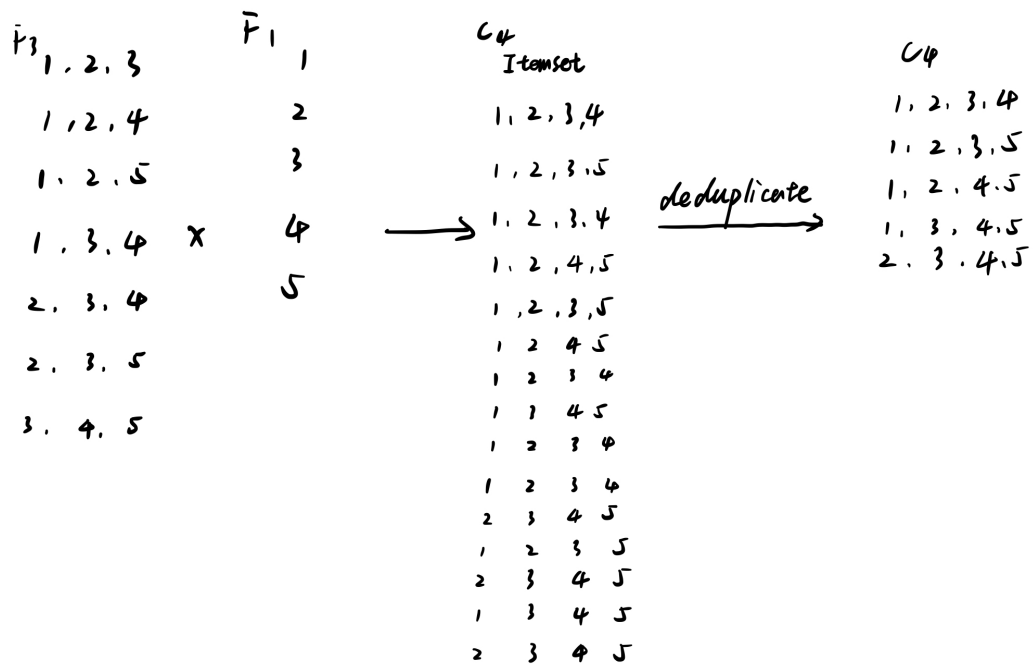 F3
1, 2, 3
1, 2, 4
1, 2, 5
1, 3, 4
2, 3, 4
2, 3, 5
3, 4, 5
x
F1
1
2
3
4
5
C4
Itemset
1, 2, 3, 4
1, 2, 3, 5
1, 2, 3, 4
1, 2, 4, 5
1, 2, 3, 5
1 2 4 5
1 2 3 4
1 3 4 5
1 2 3 4
1 2 3 4
2 3 4 5
1 2 3 5
2 3 4 5
1 3 4 5
2 3 4 5
deduplicate
C4
1, 2, 3, 4
1, 2, 3, 5
1, 2, 4, 5
1, 3, 4, 5
2, 3, 4, 5